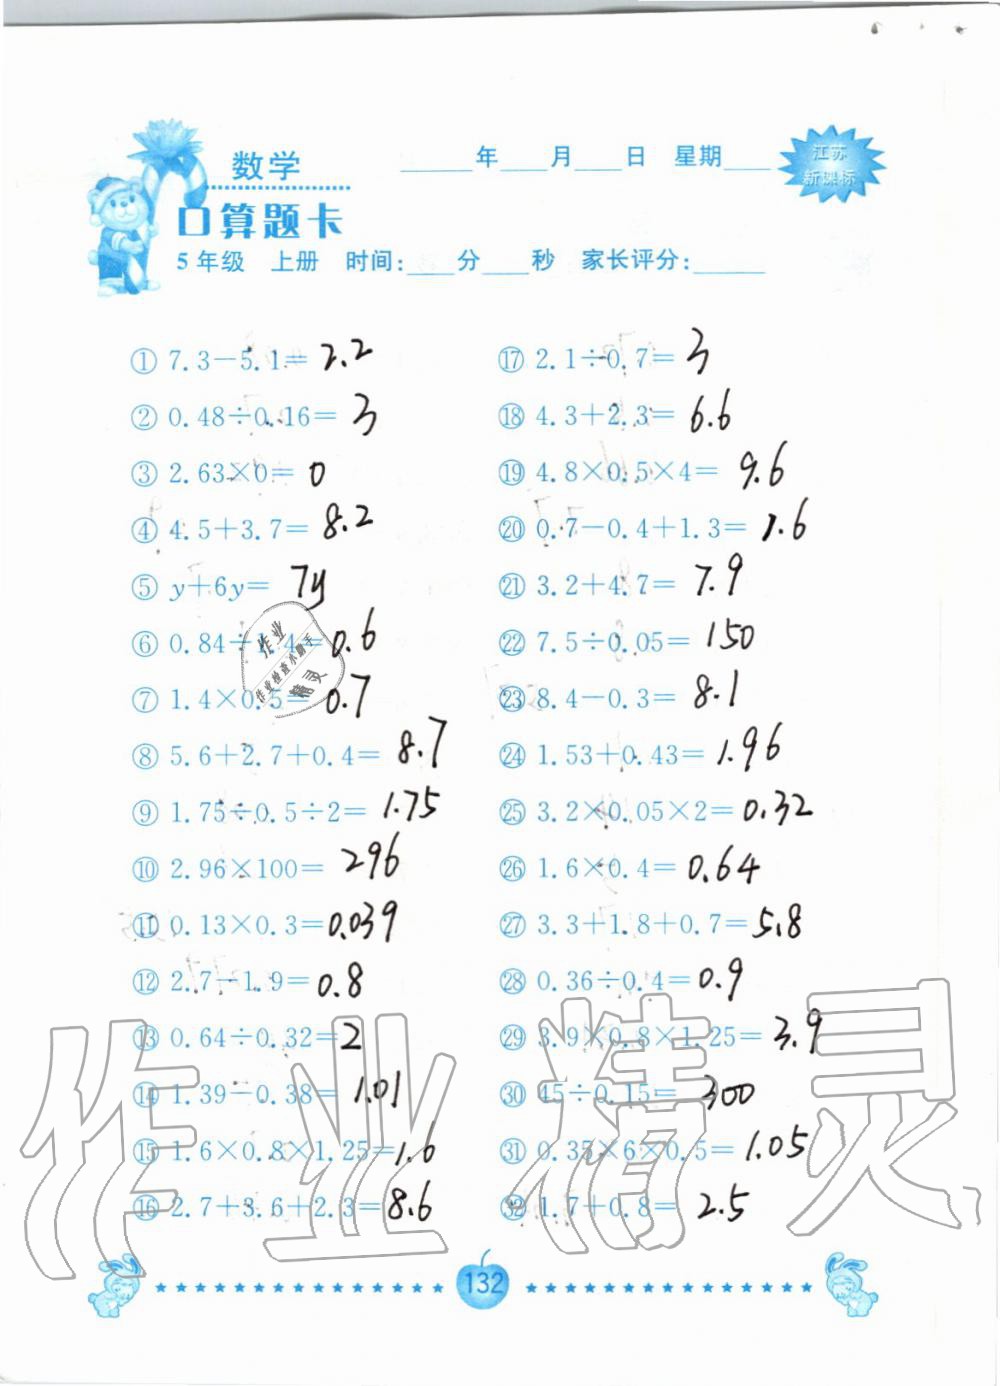 数学
____年____月____日 星期____
江苏
新课标
口算题卡
5年级 上册 时间:____分____秒 家长评分:______
① 7.3-5.1= 2.2
② 0.48÷0.16= 3
③ 2.63×0= 0
④ 4.5+3.7= 8.2
⑤ y+6y= 7y
⑥ 0.84÷1.4= 0.6
⑦ 1.4×0.5= 0.7
⑧ 5.6+2.7+0.4= 8.7
⑨ 1.75÷0.5÷2= 1.75
⑩ 2.96×100= 296
⑪ 0.13×0.3= 0.039
⑫ 2.7-1.9= 0.8
⑬ 0.64÷0.32= 2
⑭ 1.39-0.38= 1.01
⑮ 1.6×0.8×1.25= 1.6
⑯ 2.7+3.6+2.3= 8.6
⑰ 2.1÷0.7= 3
⑱ 4.3+2.3= 6.6
⑲ 4.8×0.5×4= 9.6
⑳ 0.7-0.4+1.3= 1.6
㉑ 3.2+4.7= 7.9
㉒ 7.5÷0.05= 150
㉓ 8.4-0.3= 8.1
㉔ 1.53+0.43= 1.96
㉕ 3.2×0.05×2= 0.32
㉖ 1.6×0.4= 0.64
㉗ 3.3+1.8+0.7= 5.8
㉘ 0.36÷0.4= 0.9
㉙ 3.9×0.8×1.25= 3.9
㉚ 45÷0.15= 300
㉛ 0.35×6×0.5= 1.05
㉜ 1.7+0.8= 2.5
作业
作业检查小助手
精灵
作业精灵
132